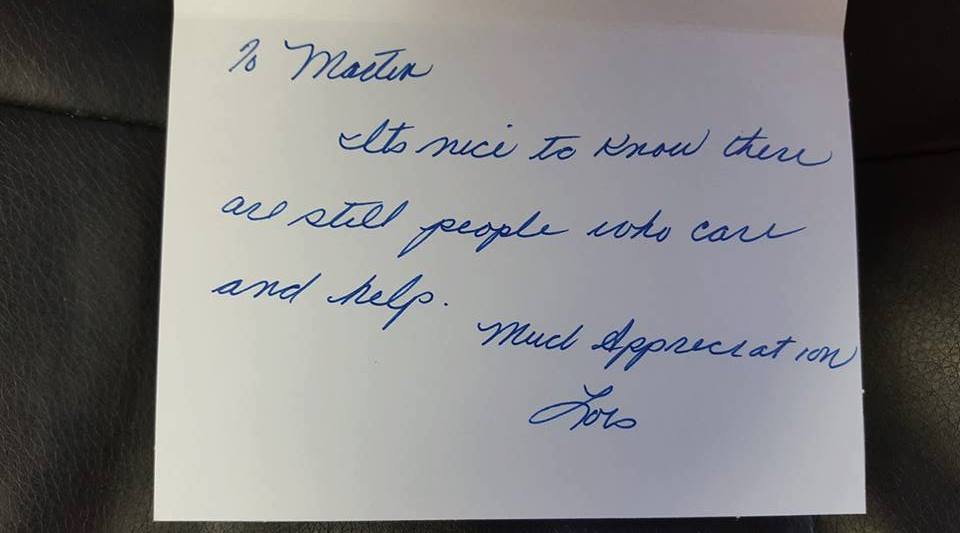 To Martin
Its nice to know there
are still people who care
and help.
Much Appreciation
Lois